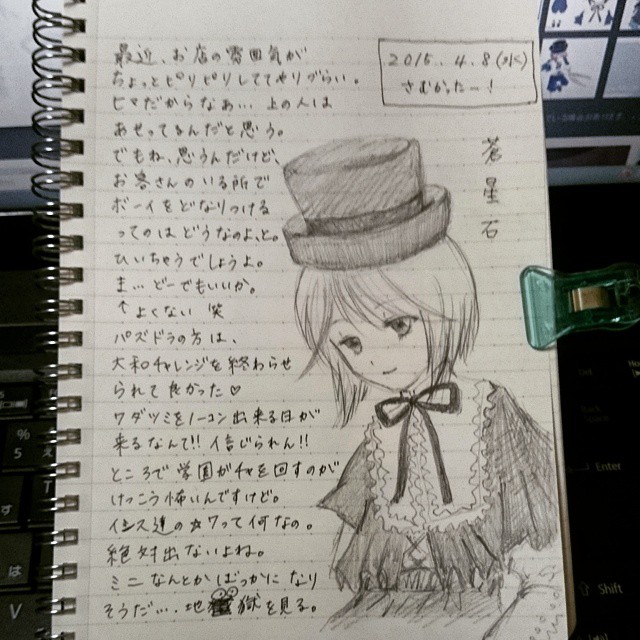 最近、お店の雰囲気が
ちょっとピリピリしててやりづらい。
ヒマだからなぁ…上の人は
あせってるんだと思う。
でもね、思うんだけど、
お客さんのいる所で
ボーイをどなりつける
ってのはどうなのよ、と。
ひいちゃうでしょうよ。
ま…どーでもいいか。
↑よくない 笑
パズドラの方は、
大和チャレンジを終わらせ
られて良かった♡
ワダツミをノーコン出来る日が
来るなんて!!信じられん!!
ところで学園ガチャを回すのが
けっこう怖いんですけど。
イシス達の☆7って何なの。
絶対出ないよね。
ミニなんとかばっかになり
そうだ…地獄を見る。
2015.4.8(水)
さむかったー!
蒼星石
% 5 え
す
は
V
Enter
Shift